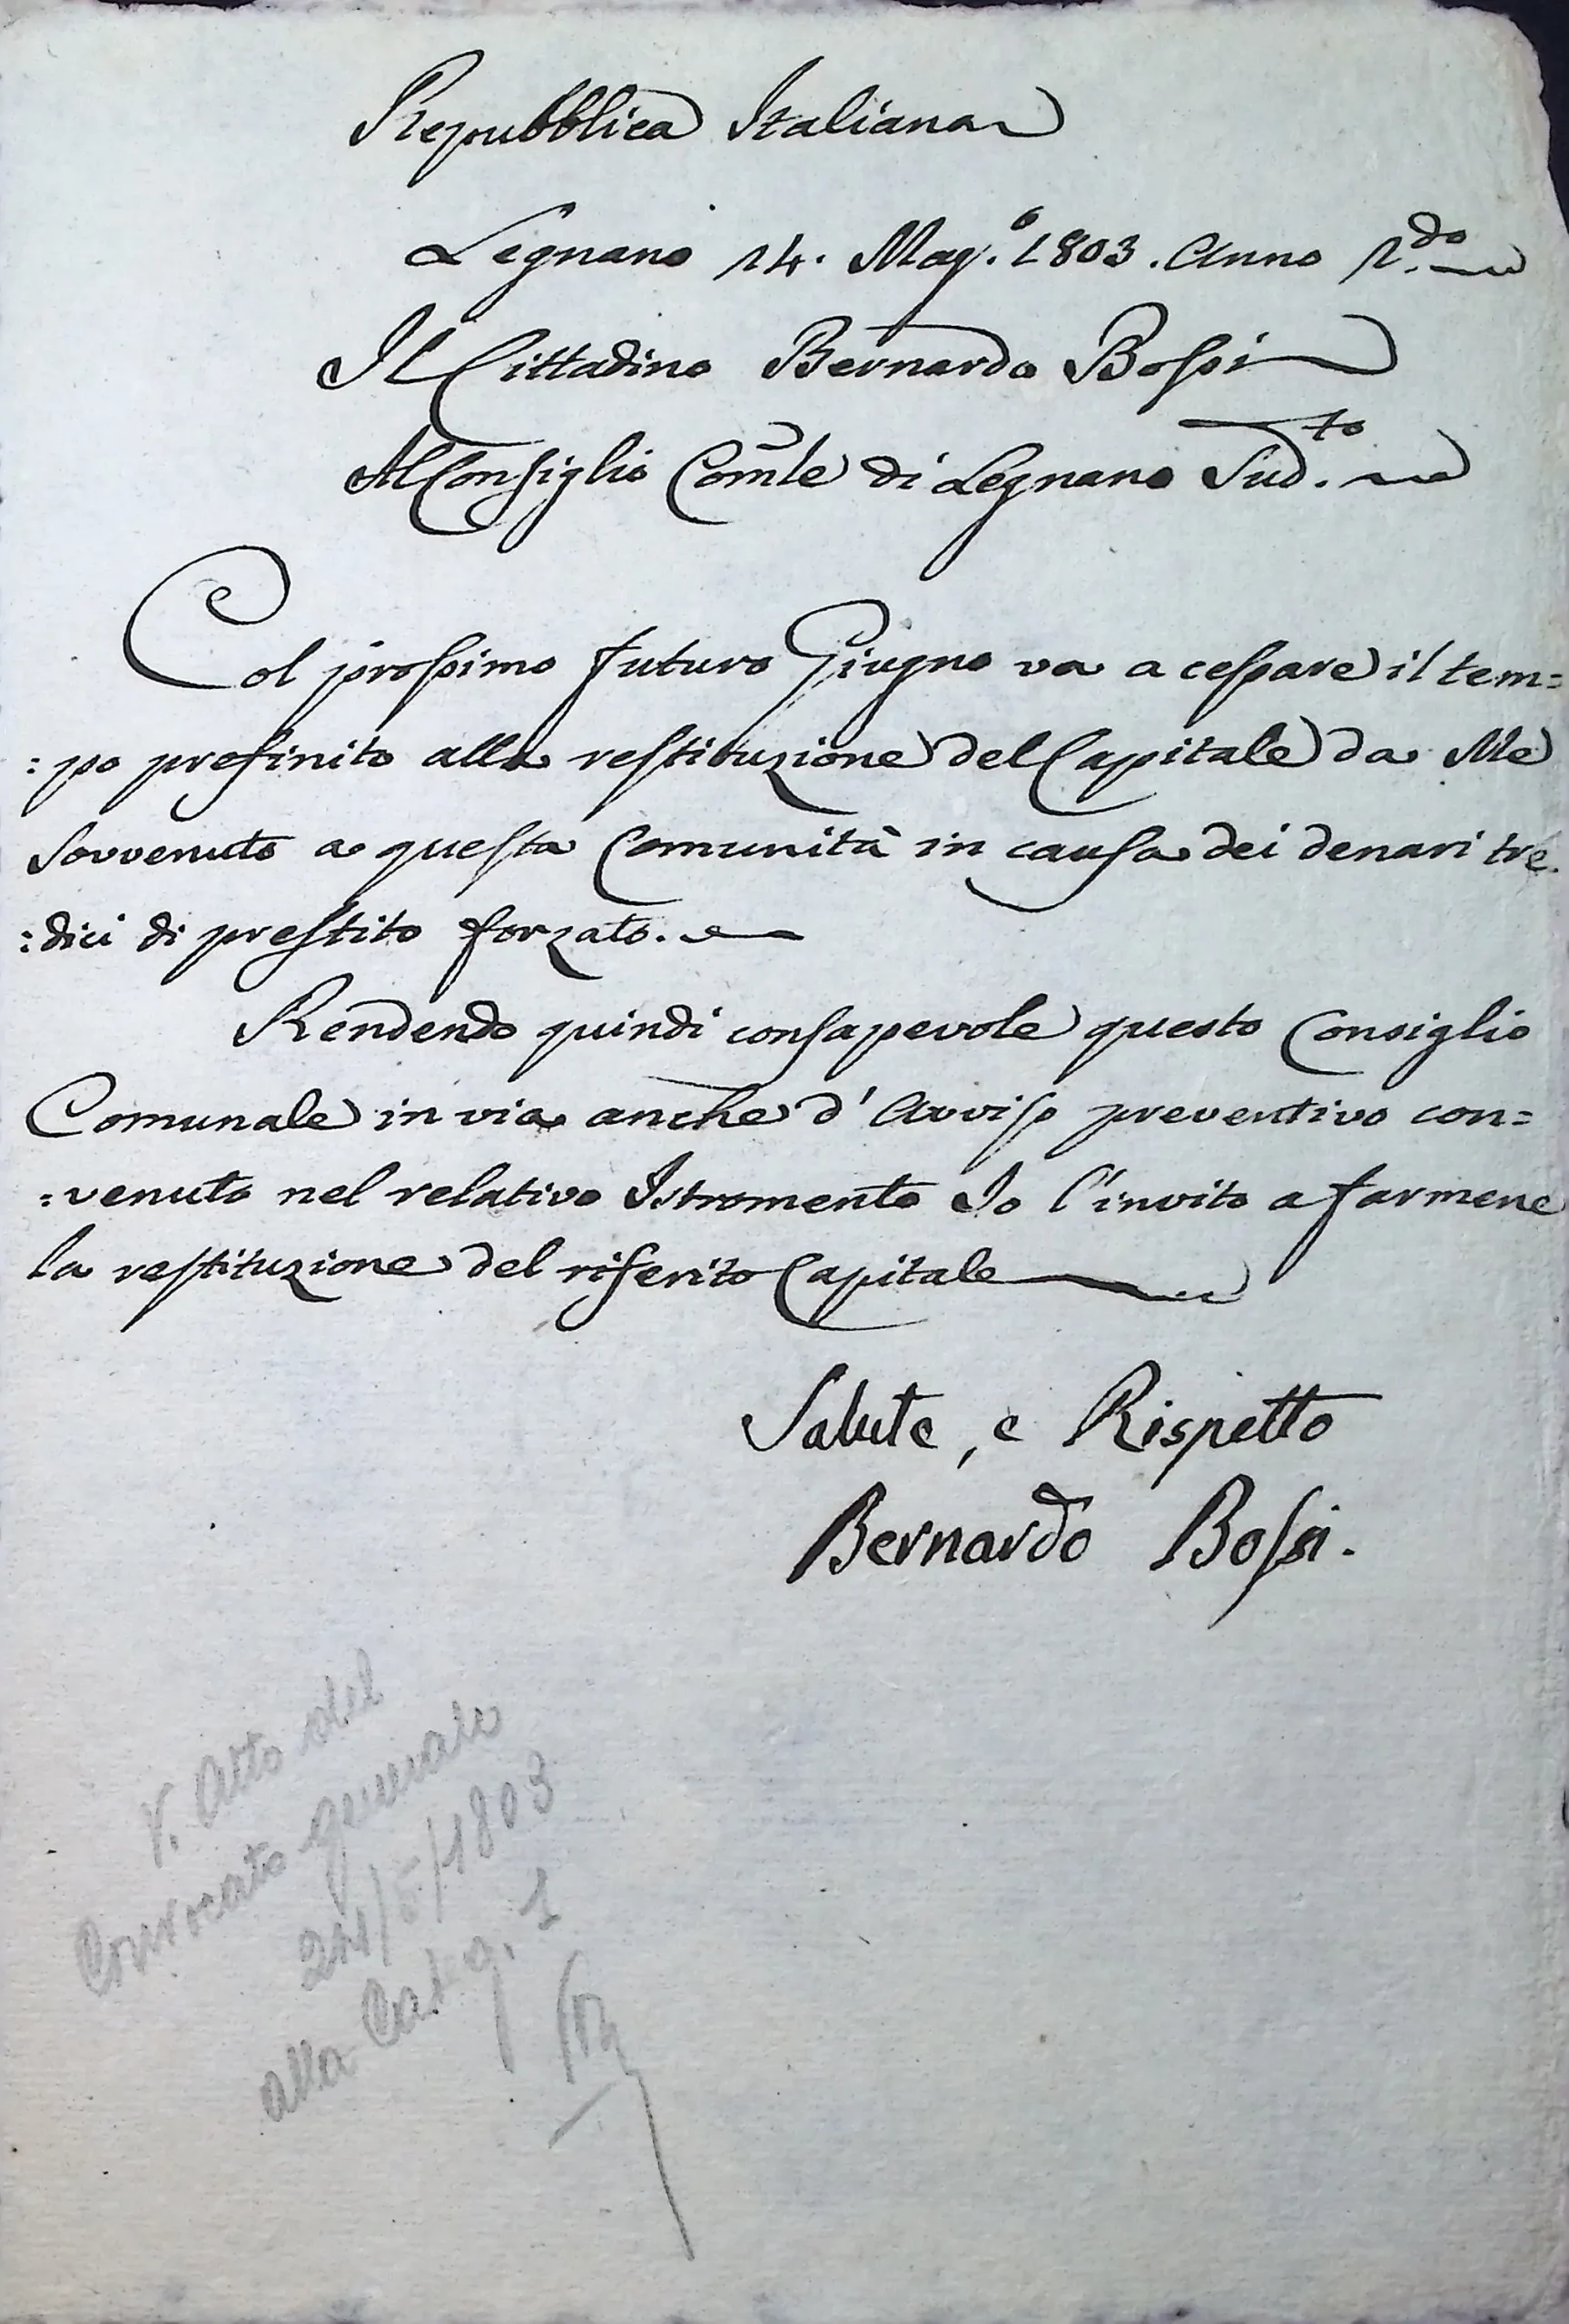 Repubblica Italiana
Legnano 14. Mag.º 1803. Anno 2.do
Il Cittadino Bernardo Bossi
Al Consiglio Com̃le di Legnano Sud.to
Col prossimo futuro Giugno va a cessare il tem=
:po prefinito alla restituzione del Capitale da Me
Sovvenuto a questa Comunità in causa dei denari tre
:dici di prestito forzato.
Rendendo quindi consapevole questo Consiglio
Comunale in via anche d' Avviso preventivo con=
:venuto nel relativo Istromento Io l'invito a farmene
la restituzione del riferito Capitale
Salute, e Rispetto
Bernardo Bossi.
V. Atto del
Convocato generale
24/5/1803
alla Categ. 1